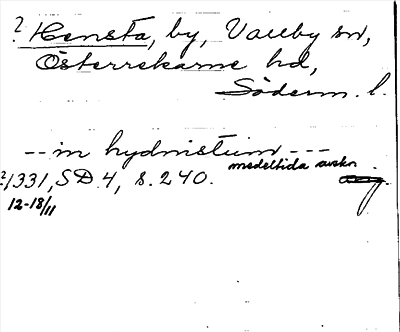 ? Hensta, by, Valby sn,
Österrekarne hd,
Söderm. l.
-- in hydnistum ---
medeltida avskr.
?1331, SD 4, s. 240.
12-18/11